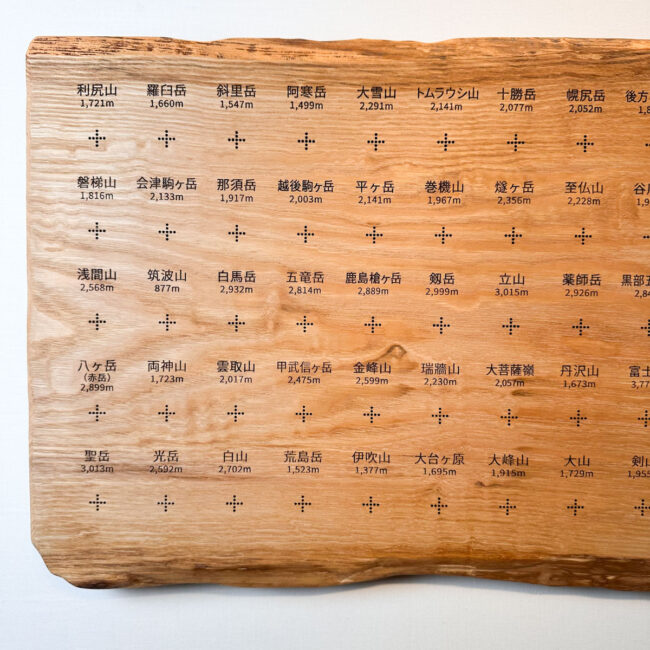 利尻山 羅臼岳 斜里岳 阿寒岳 大雪山 トムラウシ山 十勝岳 幌尻岳 後方
1,721m 1,660m 1,547m 1,499m 2,291m 2,141m 2,077m 2,052m 1,8
磐梯山 会津駒ヶ岳 那須岳 越後駒ヶ岳 平ヶ岳 巻機山 燧ヶ岳 至仏山 谷
1,816m 2,133m 1,917m 2,003m 2,141m 1,967m 2,356m 2,228m 1,9
浅間山 筑波山 白馬岳 五竜岳 鹿島槍ヶ岳 剱岳 立山 薬師岳 黒部五
2,568m 877m 2,932m 2,814m 2,889m 2,999m 3,015m 2,926m 2,8
八ヶ岳 両神山 雲取山 甲武信ヶ岳 金峰山 瑞牆山 大菩薩嶺 丹沢山 富士
(赤岳) 1,723m 2,017m 2,475m 2,599m 2,230m 2,057m 1,673m 3,77
2,899m
聖岳 光岳 白山 荒島岳 伊吹山 大台ヶ原 大峰山 大山 剣山
3,013m 2,592m 2,702m 1,523m 1,377m 1,695m 1,915m 1,729m 1,955